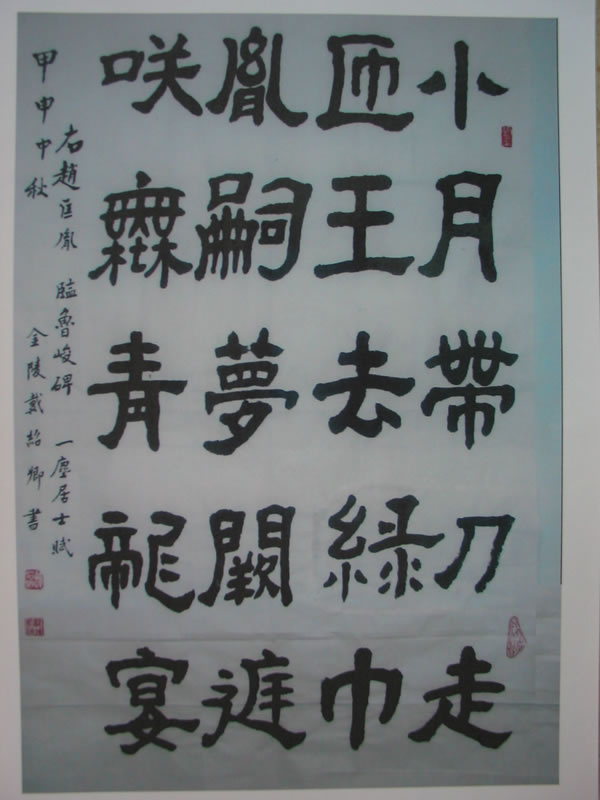 小月帶刀走
匝王去綠巾
胤嗣夢闕進
咲橆青龍宴
右趙匡胤 臨魯峻碑 一塵居士賦
甲申中秋 金陵戴紹卿書